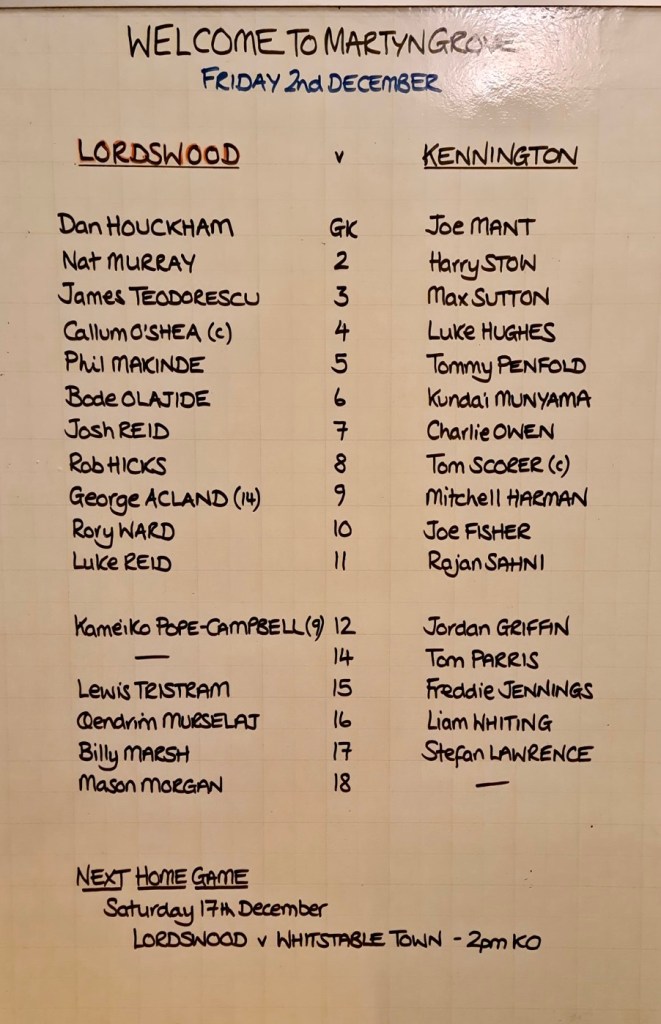 WELCOME TO MARTYN GROVE
FRIDAY 2nd DECEMBER
LORDSWOOD v KENNINGTON
Dan HOUCKHAM GK Joe MANT
Nat MURRAY 2 Harry STOW
James TEODORESCU 3 Max SUTTON
Callum O'SHEA (c) 4 Luke HUGHES
Phil MAKINDE 5 Tommy PENFOLD
Bode OLAJIDE 6 Kundai MUNYAMA
Josh REID 7 Charlie OWEN
Rob HICKS 8 Tom SCORER (c)
George ACLAND (14) 9 Mitchell HARMAN
Rory WARD 10 Joe FISHER
Luke REID 11 Rajan SAHNI
Kameiko POPE-CAMPBELL (9) 12 Jordan GRIFFIN
— 14 Tom PARRIS
Lewis TRISTRAM 15 Freddie JENNINGS
Qendrim MURSELAJ 16 Liam WHITING
Billy MARSH 17 Stefan LAWRENCE
Mason MORGAN 18 —
NEXT HOME GAME
Saturday 17th December
LORDSWOOD v WHITSTABLE TOWN - 2pm KO